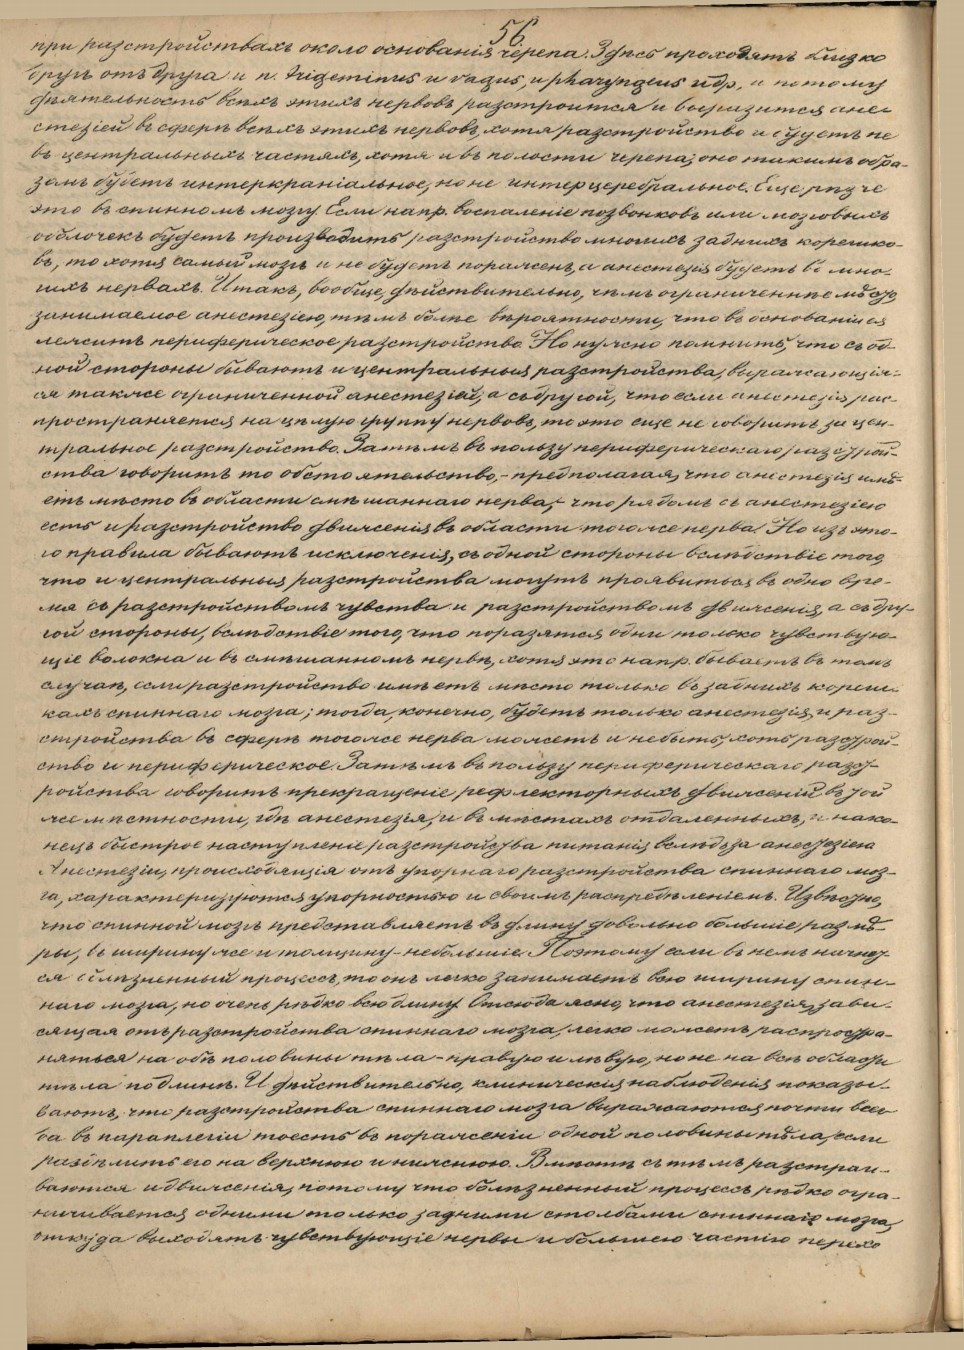 56
при разстройствахъ около основанія черепа. Здѣсь проходятъ близко
другъ отъ друга и n. trigeminus и vagus, и pharyngeus и др., и потому
дѣятельность всѣхъ этихъ нервовъ разстроится и выразится ане-
стезіей въ сферѣ всѣхъ этихъ нервовъ, хотя разстройство и будетъ не
въ центральныхъ частяхъ, хотя и въ полости черепа; оно такимъ обра-
зомъ будетъ интеркраніальное, но не интерцеребральное. Еще рѣзче
это въ спинномъ мозгу. Если напр. воспаленіе позвонковъ или мозговыхъ
оболочекъ будетъ производить разстройство многихъ заднихъ корешко-
въ, то хотя самый мозгъ и не будетъ пораженъ, а анестезія будетъ въ мно-
гихъ нервахъ. Итакъ, вообще, дѣйствительно, чѣмъ ограниченнѣе мѣсто,
занимаемое анестезіею, тѣмъ болѣе вѣроятности, что въ основаніи ея
лежитъ периферическое разстройство. Но нужно помнить, что съ од-
ной стороны бываютъ и центральныя разстройства, выражающія-
ся также ограниченной анестезіей, а съ другой, что если анестезія рас-
пространяется на цѣлую группу нервовъ, то это еще не говоритъ за цен-
тральное разстройство. Затѣмъ въ пользу периферическаго разстрой-
ства говоритъ то обстоятельство, - предполагая, что анестезія имѣ-
етъ мѣсто въ области смѣшаннаго нерва, - что рядомъ съ анестезіею
есть и разстройство движенія въ области того же нерва. Но изъ это-
го правила бываютъ исключенія, съ одной стороны вслѣдствіе того,
что и центральныя разстройства могутъ проявиться въ одно вре-
мя съ разстройствомъ чувства и разстройствомъ движенія, а съ дру-
гой стороны, вслѣдствіе того, что поразятся одни только чувствую-
щіе волокна и въ смѣшанномъ нервѣ, хотя это напр. бываетъ въ томъ
случаѣ, если разстройство имѣетъ мѣсто только въ заднихъ кореш-
кахъ спиннаго мозга; тогда, конечно, будетъ только анестезія, и раз-
стройства въ сферѣ того же нерва можетъ и не быть, хоть разстрой-
ство и периферическое. Затѣмъ въ пользу периферическаго разст-
ройства говоритъ прекращеніе рефлекторныхъ движеній въ той
же мѣстности, гдѣ анестезія, и въ мѣстахъ отдаленныхъ, и нако-
нецъ быстрое наступленіе разстройства питанія вслѣдъ за анестезіею
Анестезіи, происходящія отъ упорнаго разстройства спиннаго моз-
га, характеризуются упорностью и своимъ распредѣленіемъ. Извѣстно,
что спинной мозгъ представляетъ въ длину довольно большіе размѣ-
ры, въ ширину же и толщину - небольшіе. Поэтому если въ немъ начнет-
ся болѣзненный процессъ, то онъ легко занимаетъ всю ширину спин-
наго мозга, но очень рѣдко всю длину. Отсюда ясно, что анестезія, зави-
сящая отъ разстройства спиннаго мозга, легко можетъ распростра-
няться на обѣ половины тѣла - правую и лѣвую, но не на всѣ области
тѣла по длинѣ. И дѣйствительно, клиническія наблюденія показы-
ваютъ, что разстройства спиннаго мозга выражаются почти всег-
да въ параплегіи тоесть въ пораженіи одной половины тѣла, если
раздѣлить его на верхнюю и нижнюю. Вмѣстѣ съ тѣмъ разстраи-
ваются и движенія, потому что болѣзненный процессъ рѣдко огра-
ничивается одними только задними столбами спиннаго мозга,
откуда выходятъ чувствующіе нервы и большею частію перехо